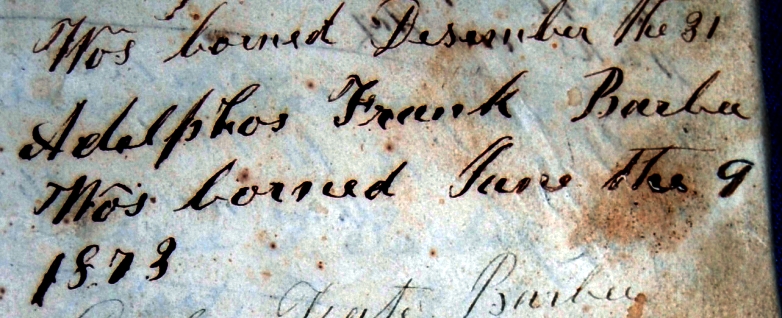 Wos borned Desember the 31
Adelphos Frank Barbee
Wos borned June the 9
1873
Kate Barbee